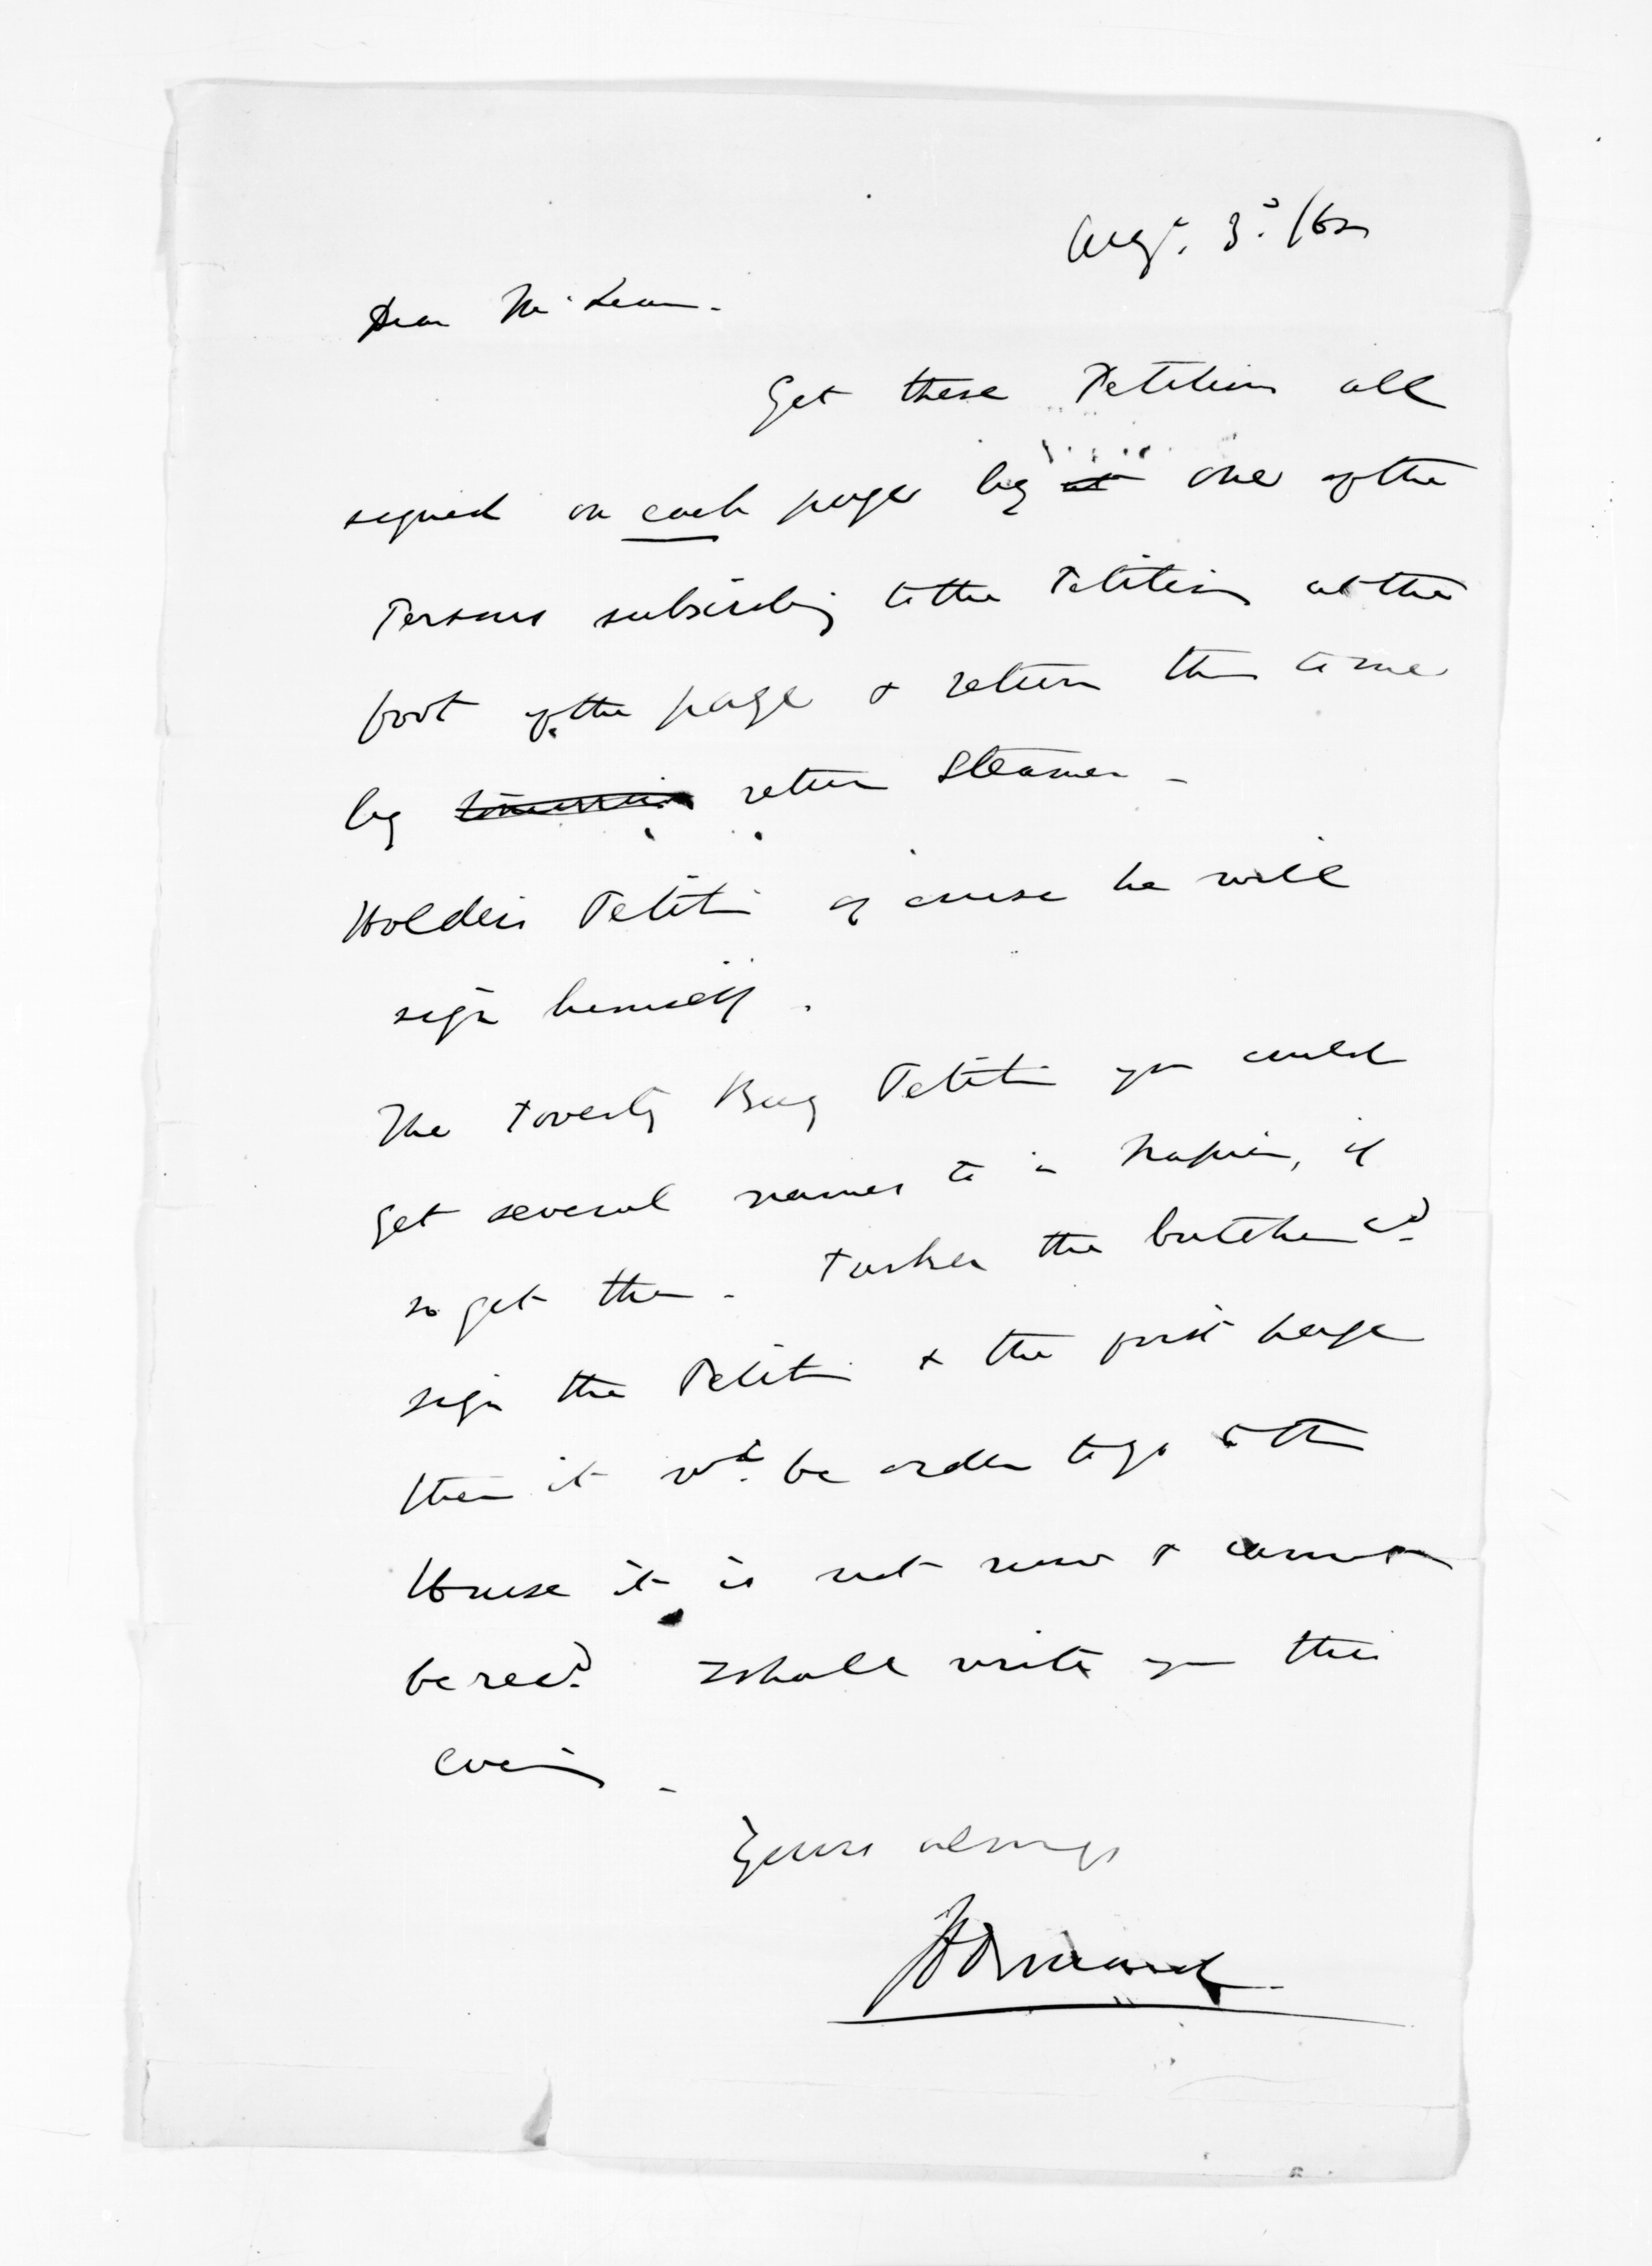 Augt. 3d. /62
Dear McLean.
Get these Petitions all
signed on each page by at one of the
Persons subscribing to the Petition at the
foot of the page & return them to me
by tomorrow return Steamer -
Holders Petitn of course he will
sign himself.
The Poverty Bay Petitn you could
get several names to in Napier, if
so get them - the butcher cd.
sign the Petitn & the first page
then it wd. be order to go to the
House it is not now & cannot
be recd. I shall write you this
eveng -
Yours always
JDOrmond